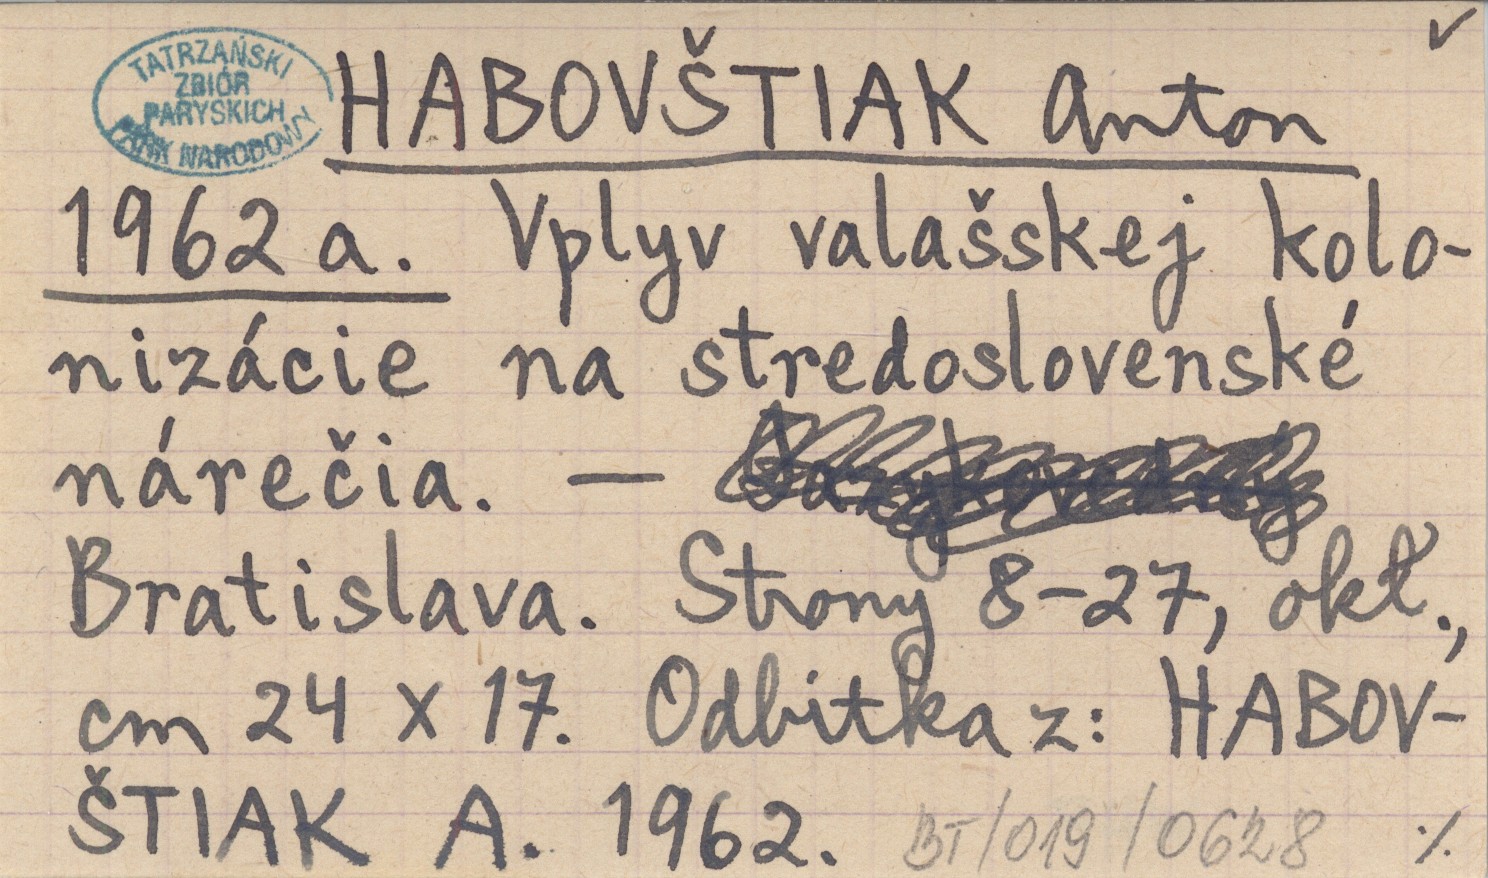 TATRZAŃSKI
ZBIÓR
PARYSKICH
PARK NARODOWY
HABOVŠTIAK Anton
1962 a. Vplyv valašskej kolo-
nizácie na stredoslovenské
nárečia. —
Bratislava. — Strony 8-27, okł.,
cm 24 x 17. Odbitka z: HABOV-
ŠTIAK A. 1962. BT/019/0628 ./.